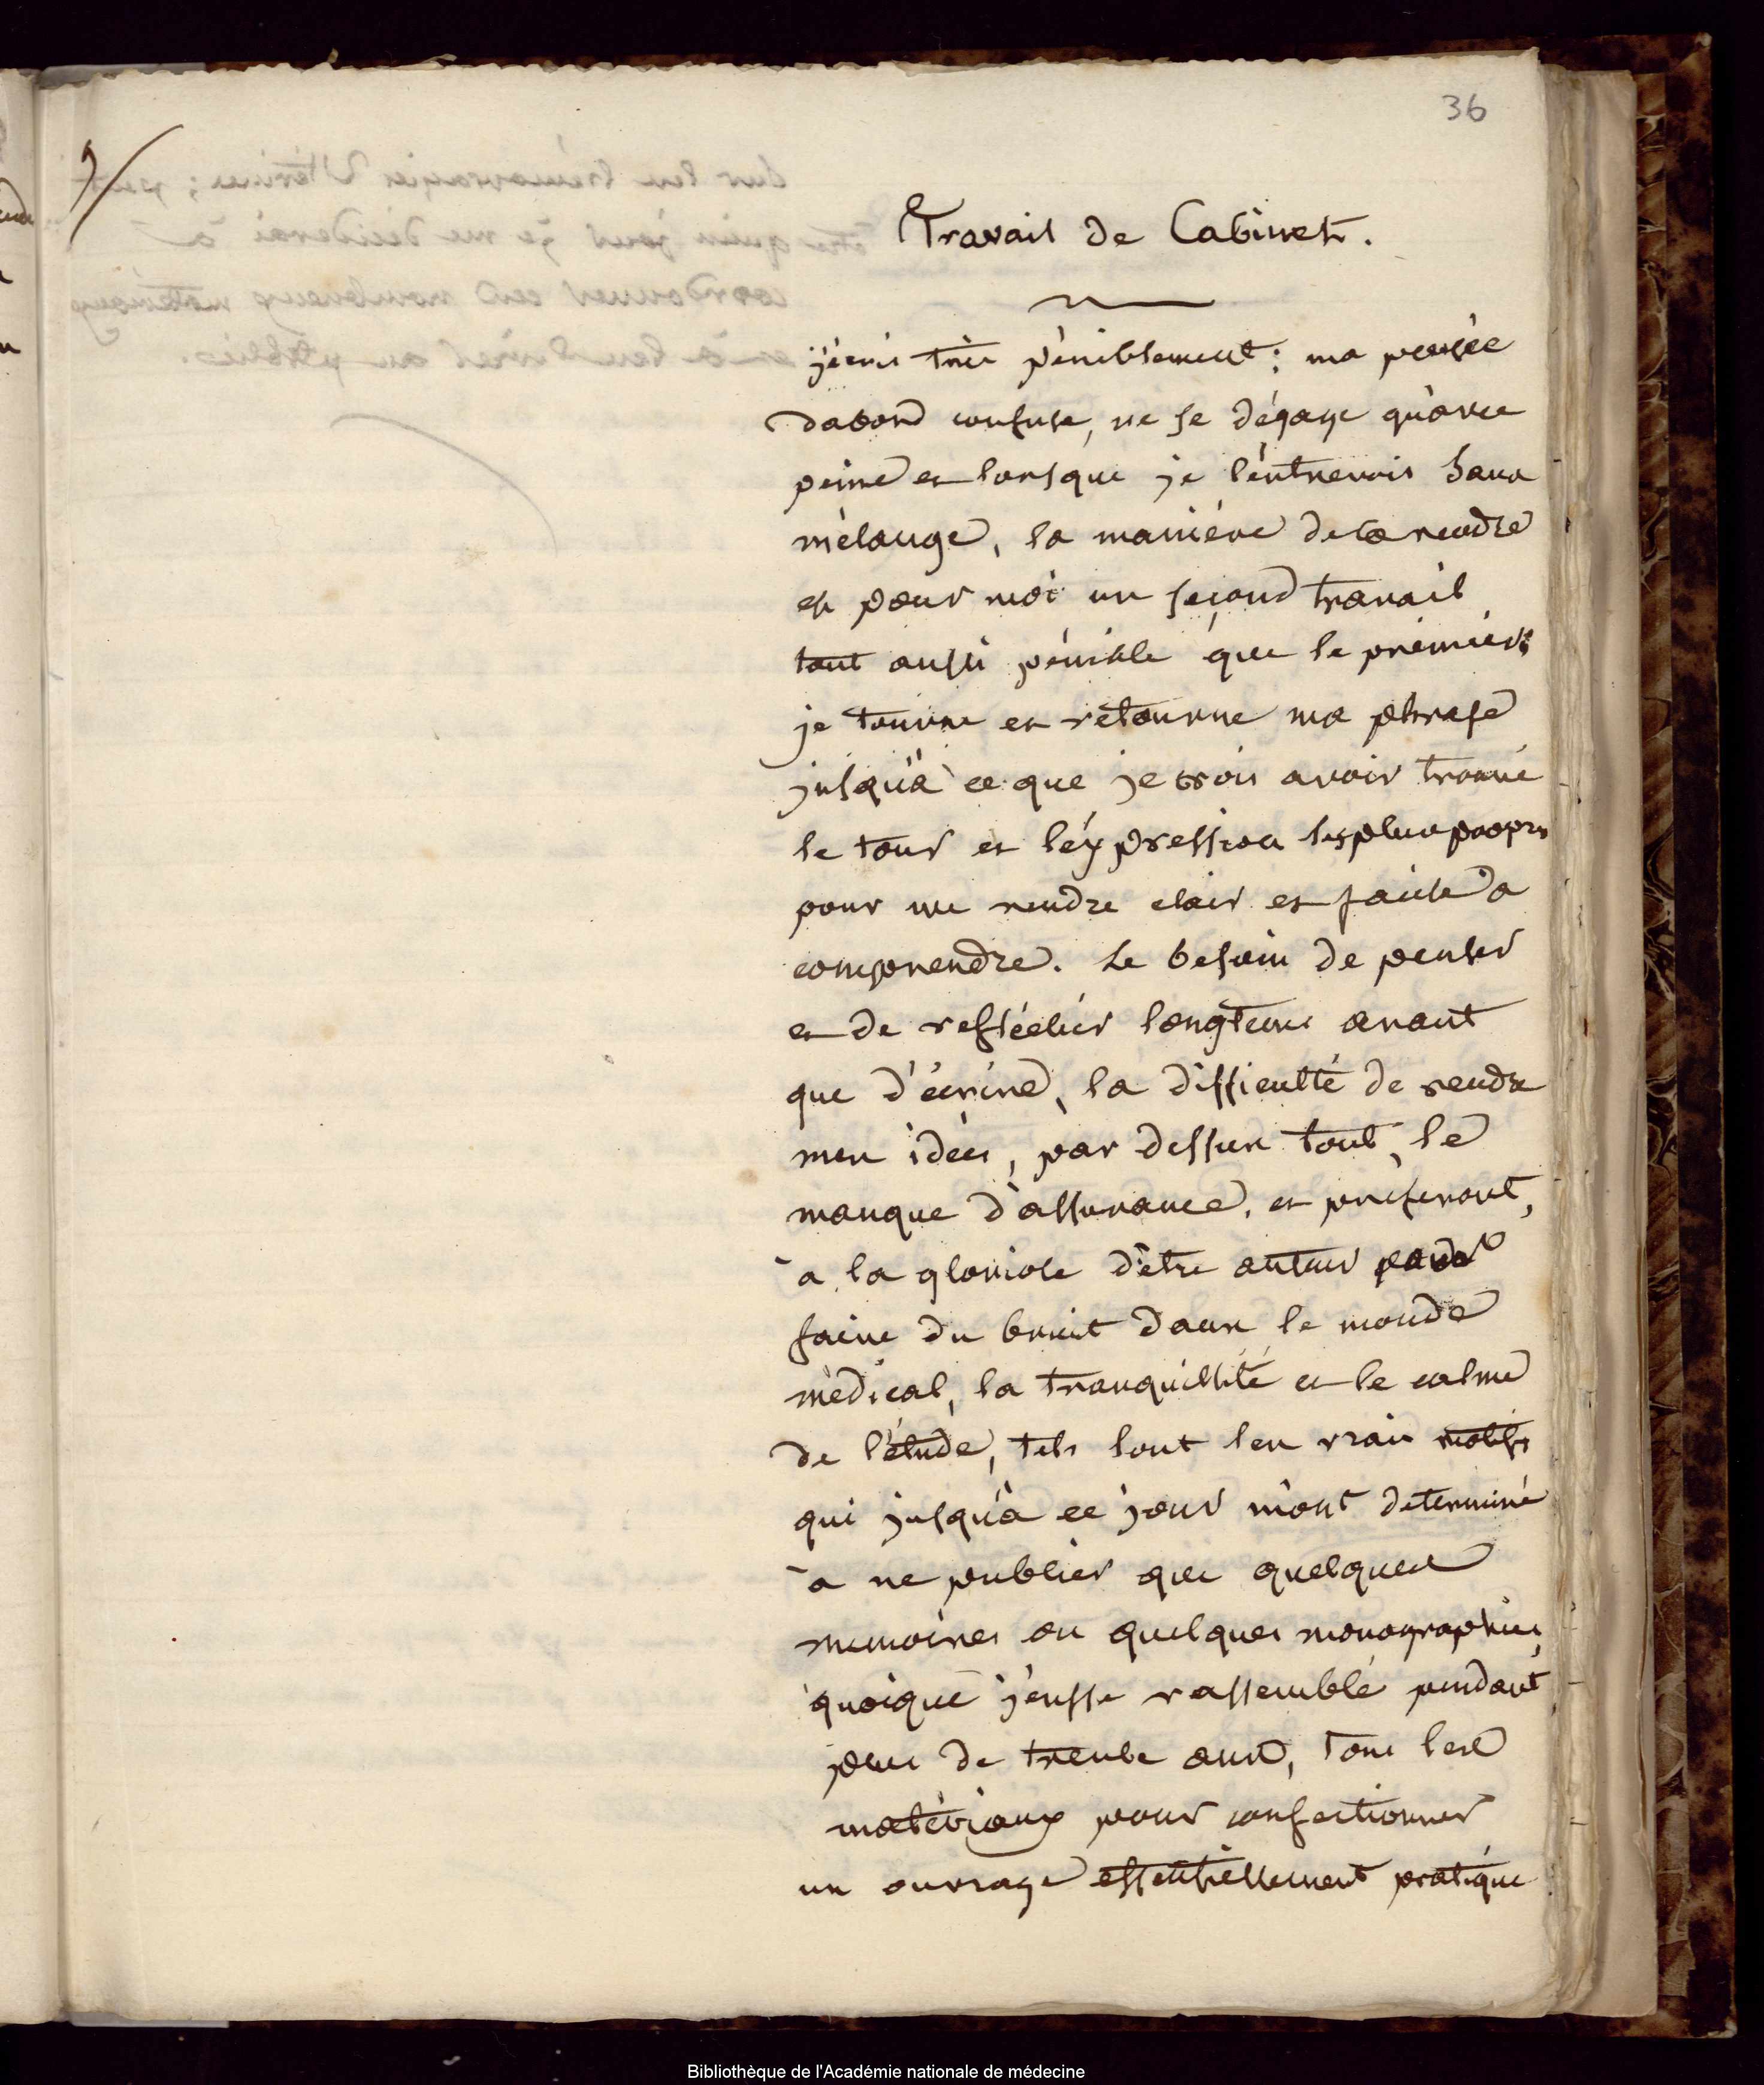 36
Travail de Cabinet.
j'écris très péniblement; ma pensée
dabord confuse, ne se dégage qu'avec
peine et lorsque je l'entrevois sans
mélange, la manière de la rendre
est pour moi un second travail
tout aussi pénible que le premier;
je tourne et retourne ma phrase
jusqu'à ce que je crois avoir trouvé
le tour et l'éxpression les plus propres
pour me rendre clair et facile à
comprendre. Le besoin de penser
et de refléchir longtems avant
que d'écrire, la difficulté de rendre
mes idées, par dessus tout, le
manque d'assurance, et préferant,
à la gloriole d'être auteur pour
faire du bruit dans le monde
médical, la tranquillité et le calme
de l'étude, tels sont les vrais motifs
qui jusqu'à ce jour m'ont determiné
à ne publier que quelques
memoires ou quelques monographies,
quoique j'eusse rassemblé pendant
plus de trente ans, tous les
matériaux pour confectionner
un ouvrage essentiellement pratique
Bibliothèque de l'Académie nationale de médecine